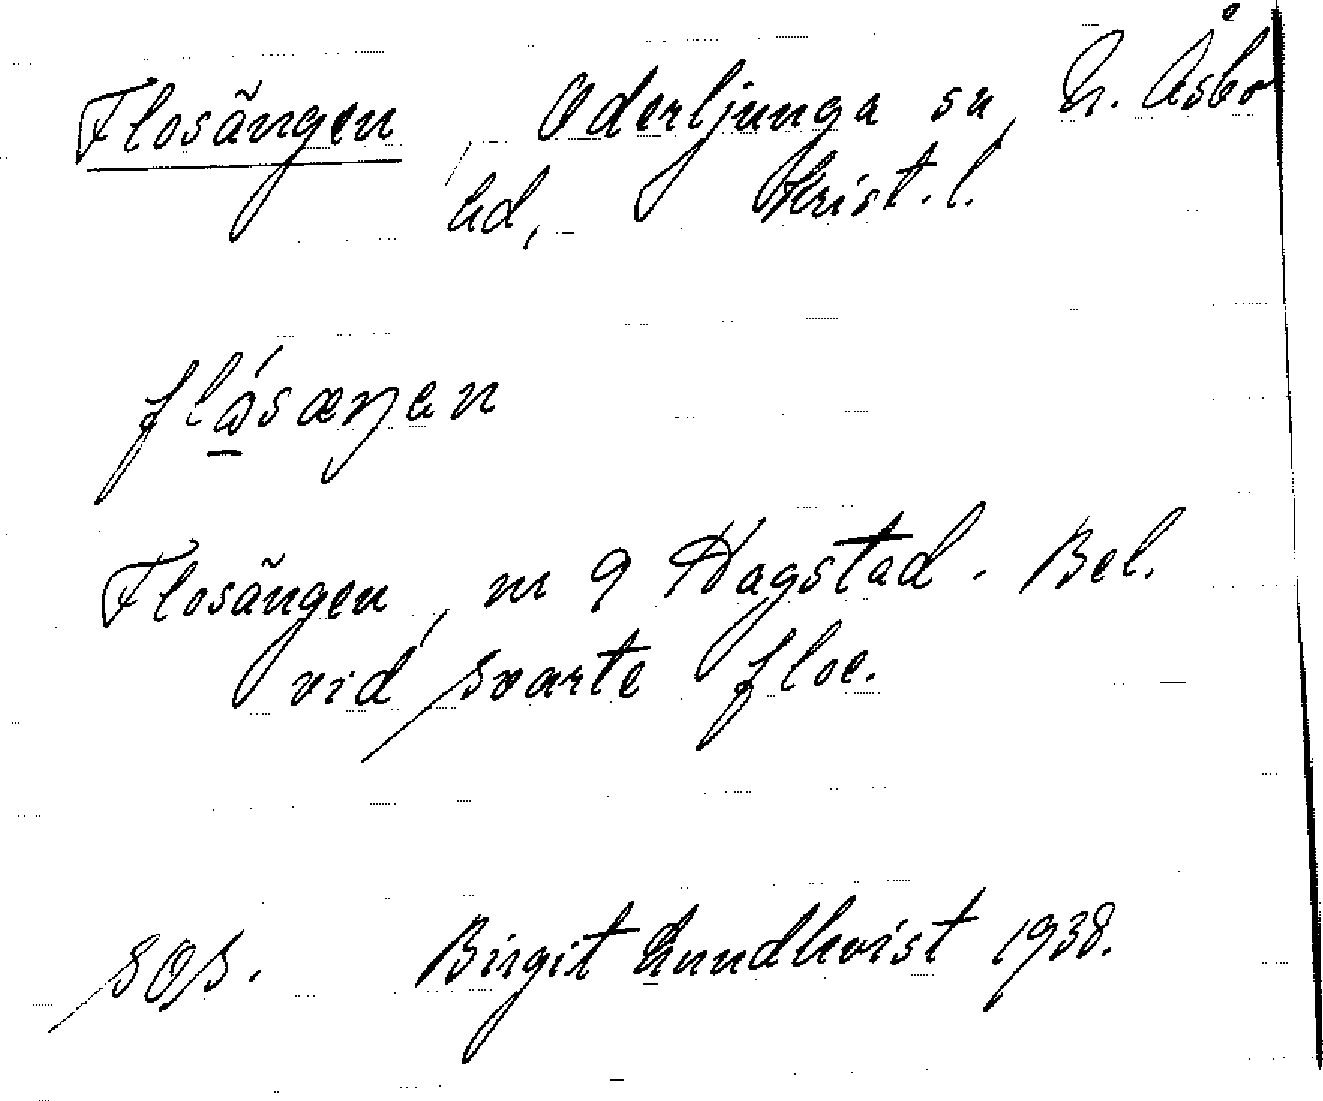 Flosängen, Oderljunga sn, N. Åsbo
hd, Krist. l.
flåsæŋen
Flosängen, m 9 Hagstad. Bel.
vid Svarte floe.
SOS. Birgit Lundkvist 1938.